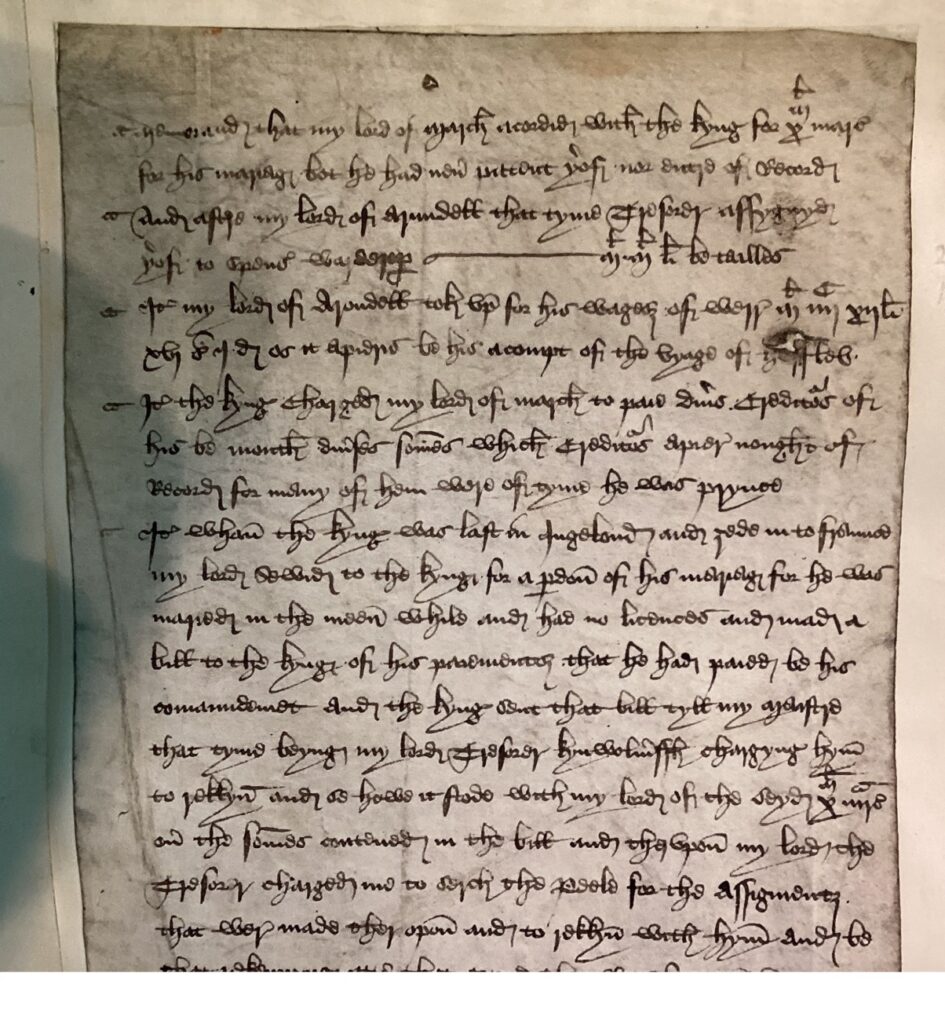 Memorand that my lord of March acordid with the kyng for xm marc
for his mariag bot he had nevir patent yerof nor entre of Record
And aftre my lord of Arundell that tyme Tresorer assygnyd
yerof to spens war mm li be tailles
It my lord of Arondell tok vp for his wages of werr m iiijc xij li
xvj s j d os it apieris be his acompt of the vyage of Hfflev.
It the kyng Charged my lord of march to paie divers Creditors of
his be mouth divses somes which Creditors apier nought of
Record for many of hem were of tyme he was prynce
It whan the kyng was last in Ingelond and zede in to fraunce
my lord sewid to the kyng for a pdon of his mariag for he was
maried in the meen while and had no licences and mad a
bill to the kyng of his paiementz that he had paied be his
comaundemet And the kyng sent that bill tyll my Maistre
that tyme beyng my lord Tresorer kynwolmssh chargyng hym
to rekkyn and se howe it stode with my lord of the seyd xm marc
on the somes contened in the bill and thervpon my lord the
Tresorer charged me to serch the Peele for the Assigmentz
that wer made ther opon and to rekkyn with hym And be